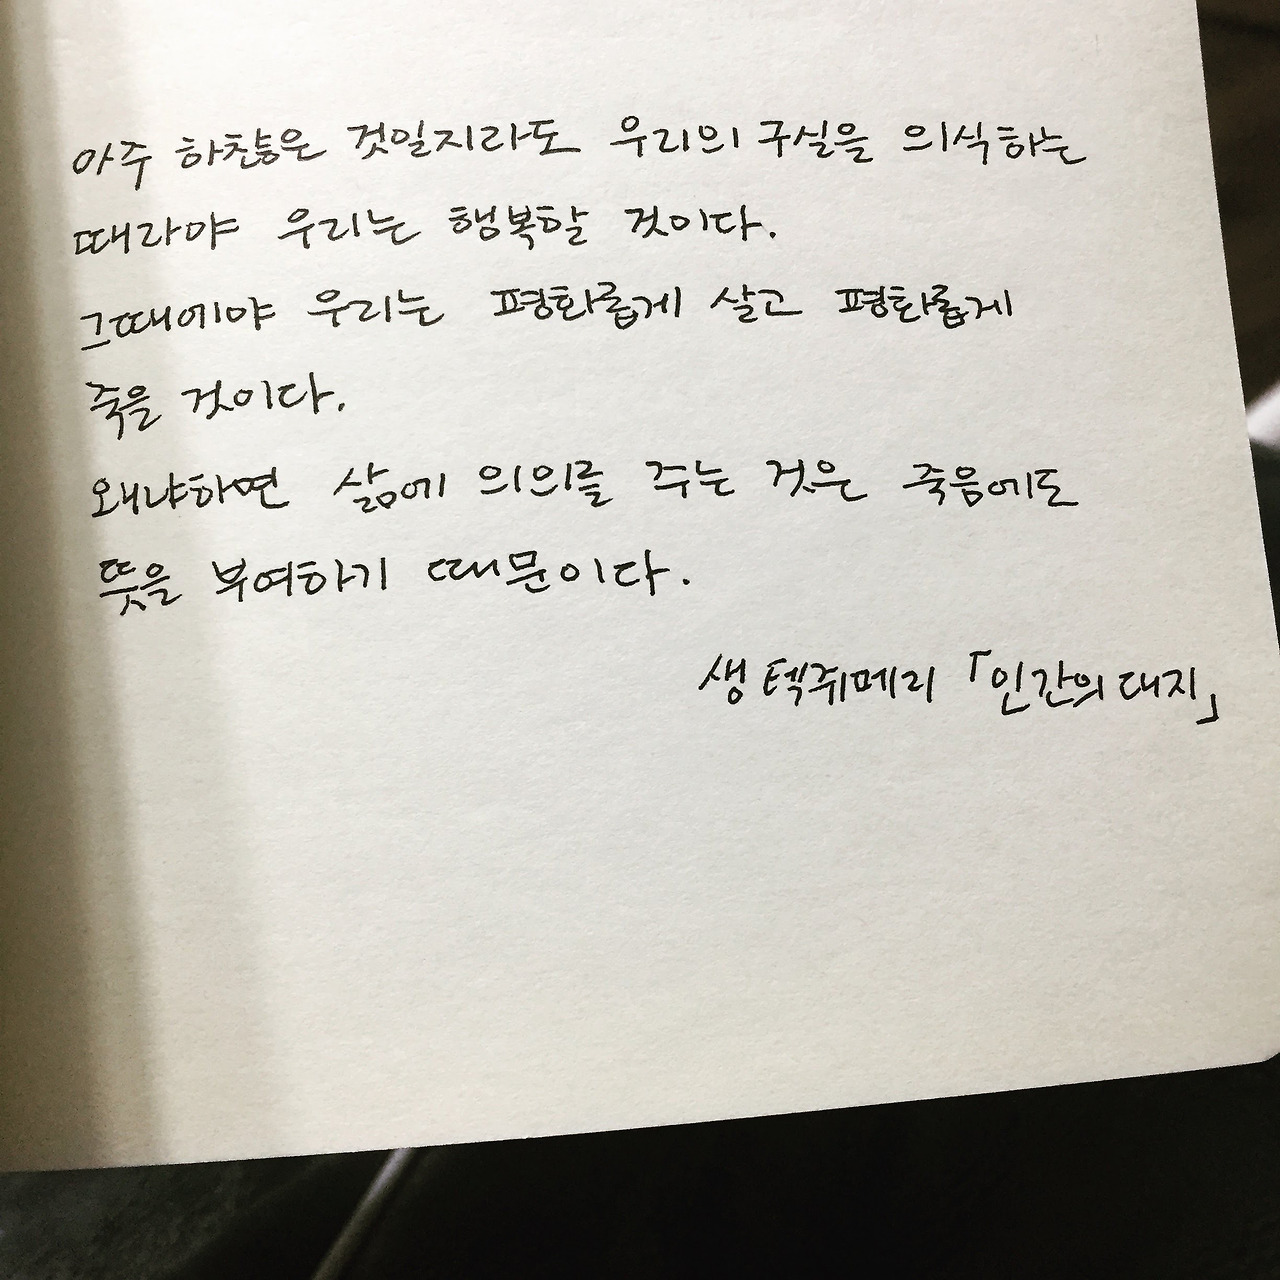 아주 하찮은 것일지라도 우리의 구실을 의식하는
때라야 우리는 행복할 것이다.
그때에야 우리는 평화롭게 살고 평화롭게
죽을 것이다.
왜냐하면 삶에 의의를 주는 것은 죽음에도
뜻을 부여하기 때문이다.
생 텍쥐페리 「인간의 대지」